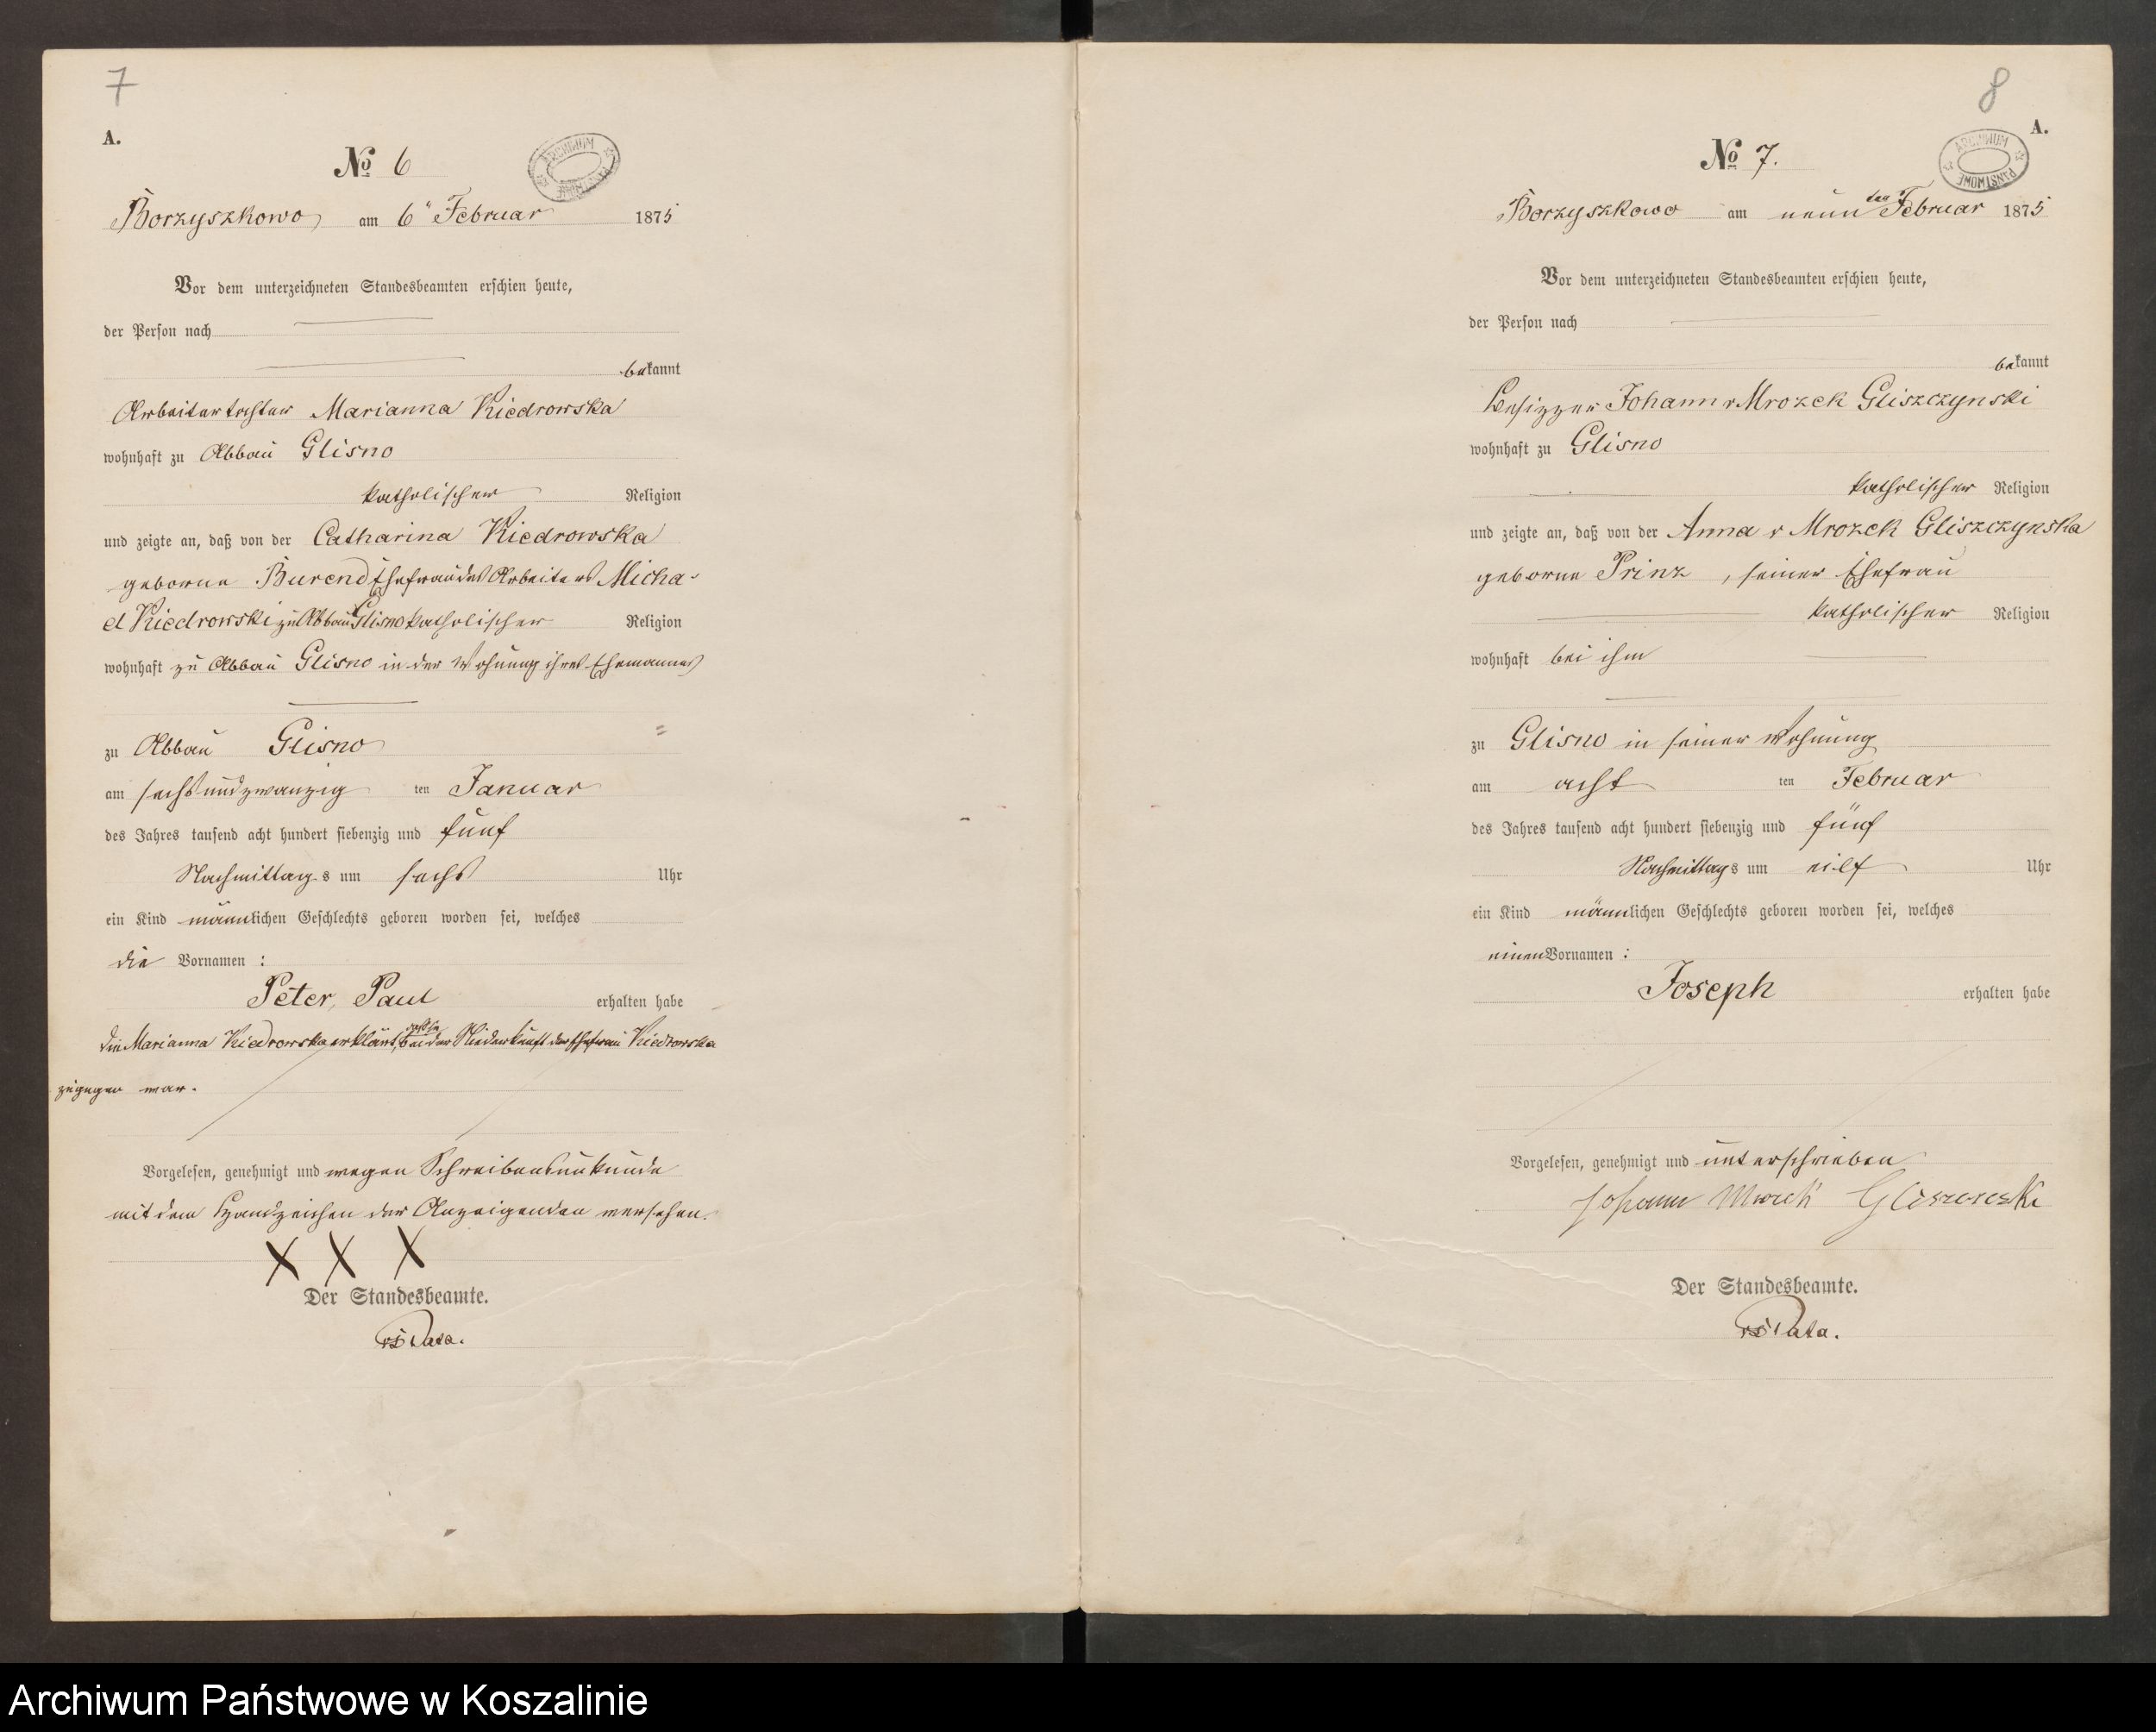 7
A.
No 6
ARCHIWUM PAŃSTWOWE
Borzyszkowo, am 6" Februar 1875
Vor dem unterzeichneten Standesbeamten erschien heute,
der Person nach
bekannt
Arbeitertochter Marianna Kiedrowska
wohnhaft zu Abbau Glisno
katholischer Religion
und zeigte an, daß von der Catharina Kiedrowska
geborne Burend Ehefrau des Arbeiters Micha-
el Kiedrowski zu Abbau Glisno katholischer Religion
wohnhaft zu Abbau Glisno in der Wohnung ihres Ehemannes
zu Abbau Glisno
am sechsundzwanzig ten Januar
des Jahres tausend acht hundert siebenzig und fünf
Nachmittags um sechs Uhr
ein Kind männlichen Geschlechts geboren worden sei, welches
die Vornamen :
Peter, Paul erhalten habe
Die Marianna Kiedrowska erklärt, daß sie bei der Niederkunft der Ehefrau Kiedrowska
zugegen war.
Vorgelesen, genehmigt und wegen Schreibensunkunde
mit dem Handzeichen der Anzeigenden versehen.
X X X
Der Standesbeamte.
8
A.
No 7.
ARCHIWUM PAŃSTWOWE
Borzyszkowo am neunten Februar 1875
Vor dem unterzeichneten Standesbeamten erschien heute,
der Person nach
bekannt
Besitzer Johann v Mrozek Gliszczynski
wohnhaft zu Glisno
katholischer Religion
und zeigte an, daß von der Anna v Mrozek Gliszczynska
geborne Prinz, seiner Ehefrau
katholischer Religion
wohnhaft bei ihm
zu Glisno in seiner Wohnung
am acht ten Februar
des Jahres tausend acht hundert siebenzig und fünf
Nachmittags um eilf Uhr
ein Kind männlichen Geschlechts geboren worden sei, welches
einen Vornamen :
Joseph erhalten habe
Vorgelesen, genehmigt und unterschrieben
Johann
Der Standesbeamte.
Archiwum Państwowe w Koszalinie